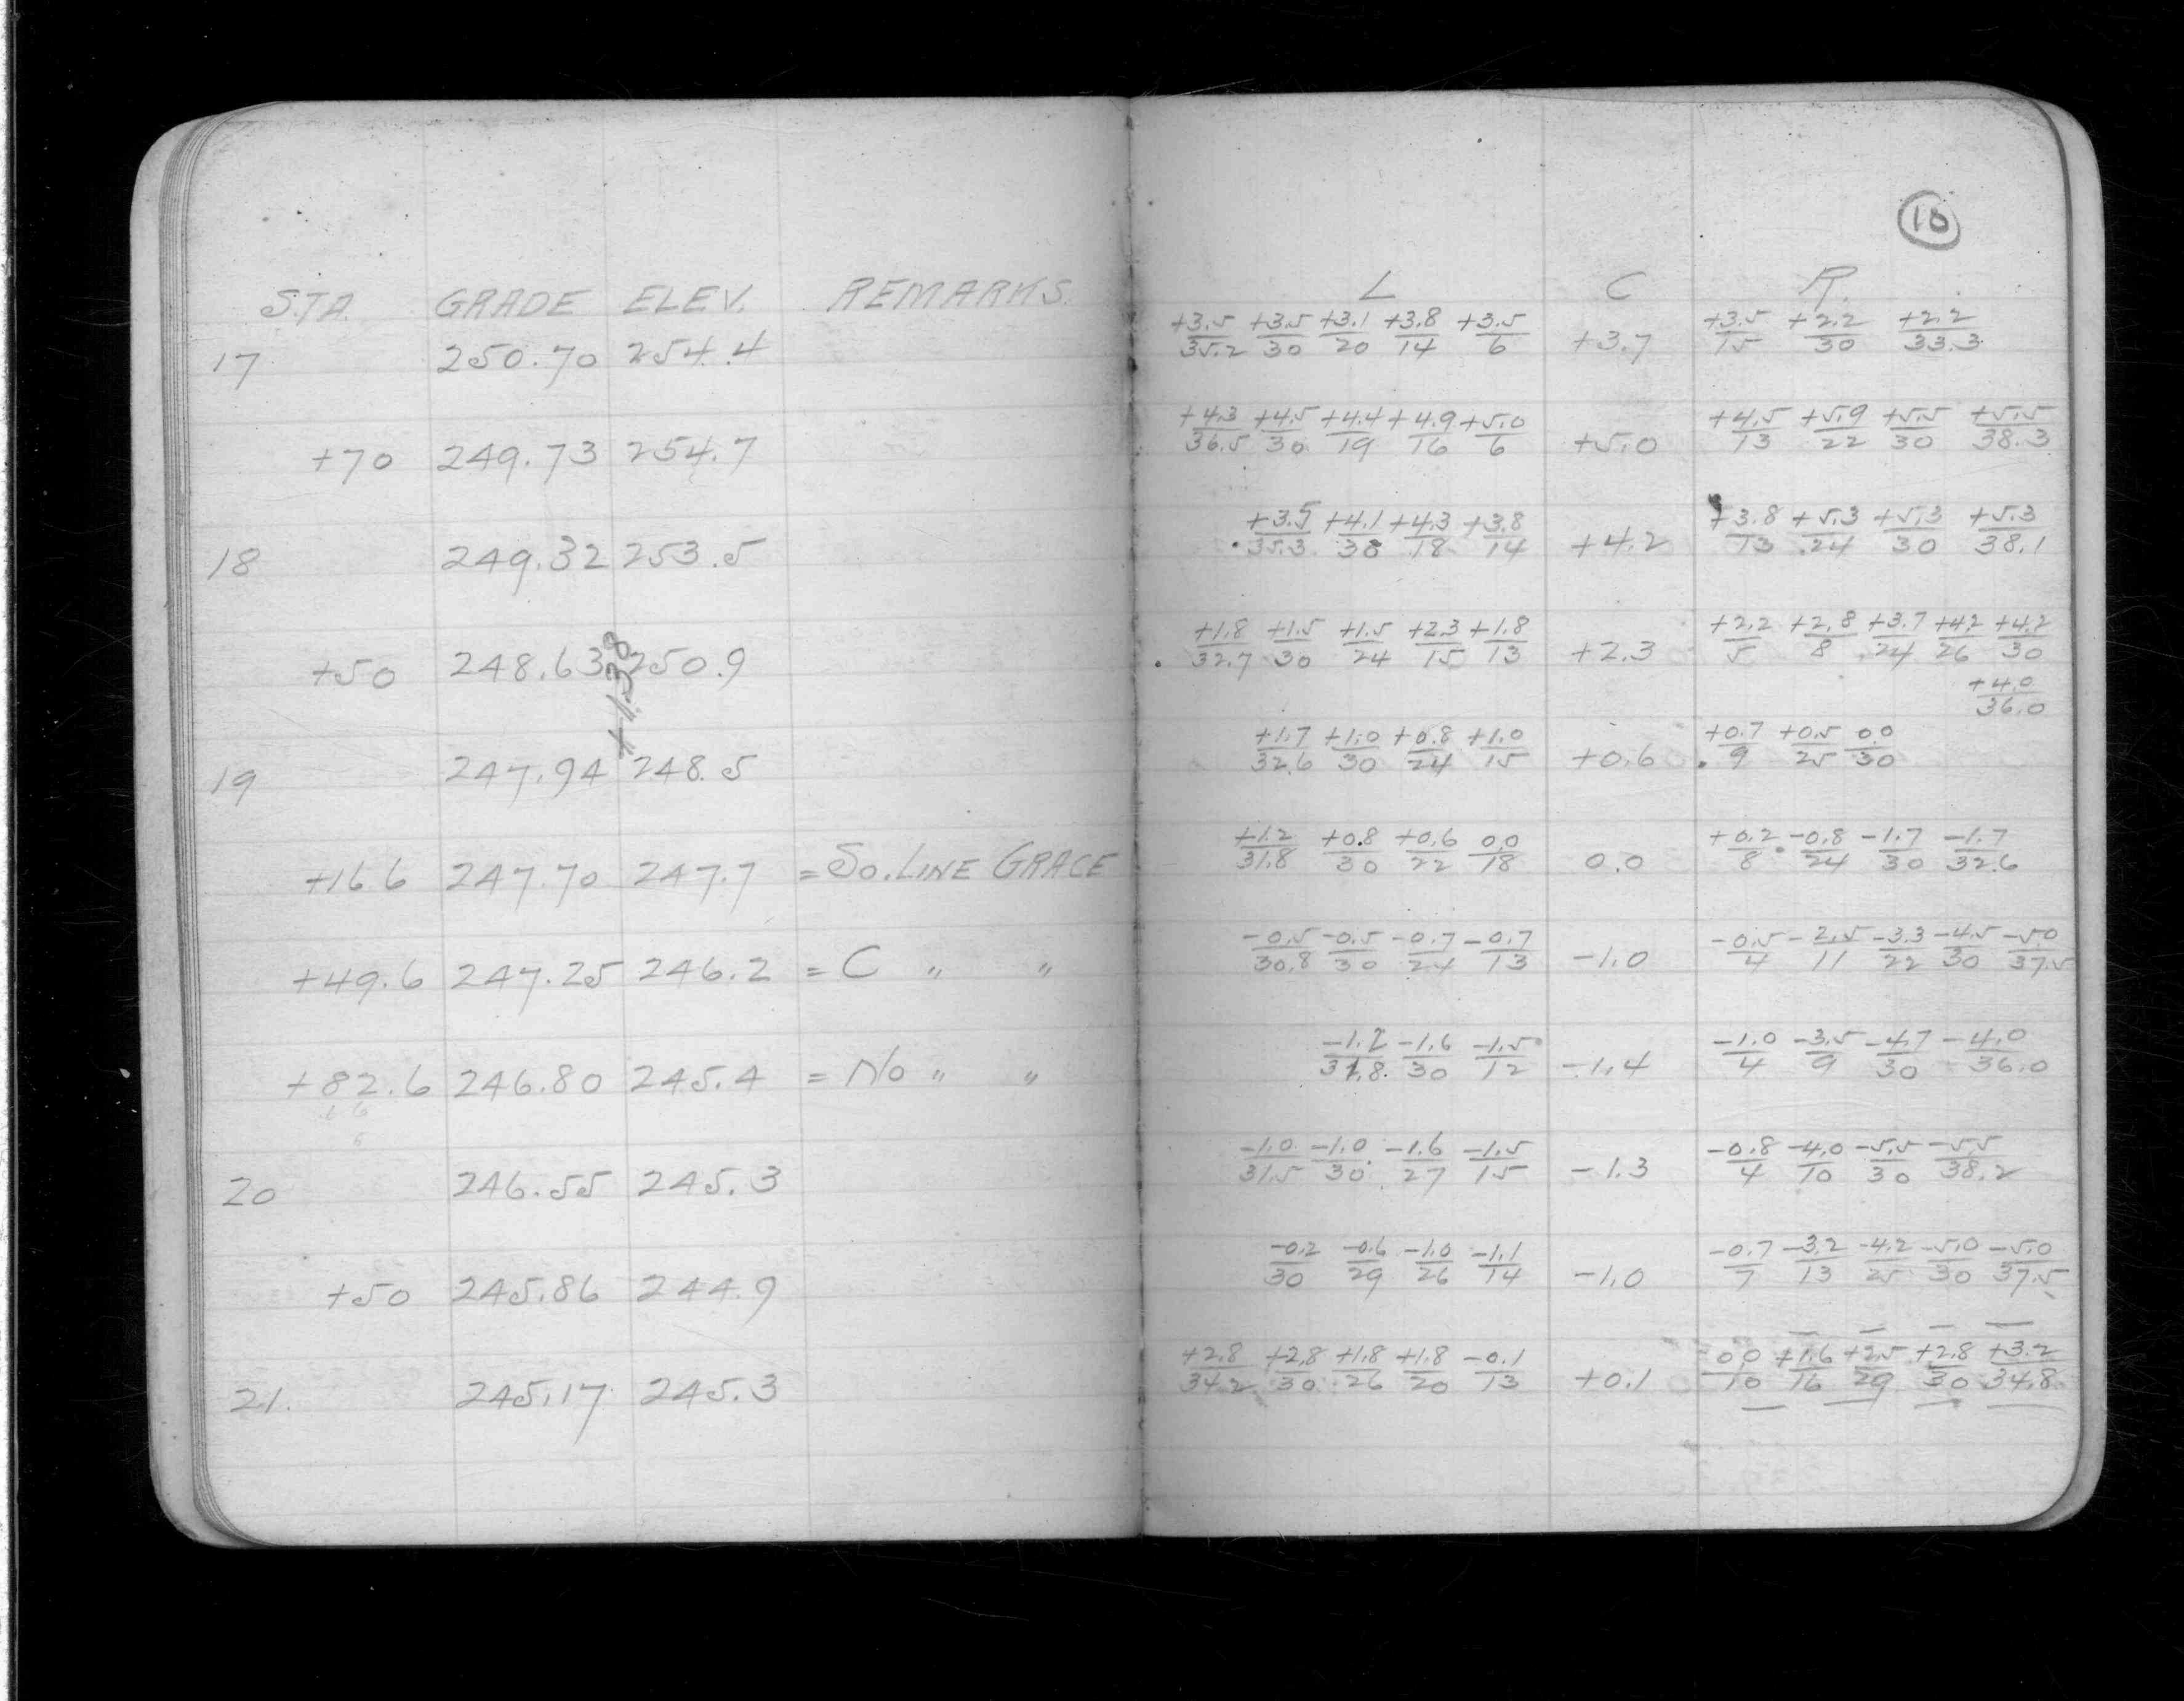 18
STA. GRADE ELEV. REMARKS. L C R.
17 250.70 254.4 +3.5/35.2 +3.5/30 +3.1/20 +3.8/14 +3.5/6 +3.7 +3.5/15 +2.2/30 +2.2/33.3
+70 249.73 254.7 +4.3/36.5 +4.5/30 +4.4/19 +4.9/16 +5.0/6 +5.0 +4.5/13 +5.9/22 +5.5/30 +5.5/38.3
18 249.32 253.5 +3.5/35.3 +4.1/30 +4.3/18 +3.8/14 +4.2 +3.8/13 +5.3/24 +5.3/30 +5.3/38.1
+50 248.63 250.9 +1.8/32.7 +1.5/30 +1.5/24 +2.3/15 +1.8/13 +2.3 +2.2/5 +2.8/8 +3.7/24 +4.2/26 +4.2/30
+4.0/36.0
+1.38
19 247.94 248.5 +1.7/32.6 +1.0/30 +0.8/24 +1.0/15 +0.6 +0.7/9 +0.5/25 0.0/30
+16.6 247.70 247.7 = So. LINE GRACE +1.2/31.8 +0.8/30 +0.6/22 0.0/18 0.0 +0.2/8 -0.8/24 -1.7/30 -1.7/32.6
+49.6 247.25 246.2 = C " " -0.5/30.8 -0.5/30 -0.7/24 -0.7/13 -1.0 -0.5/4 -2.5/11 -3.3/22 -4.5/30 -5.0/37.5
+82.6 246.80 245.4 = No " " -1.2/31.8 -1.6/30 -1.5/12 -1.4 -1.0/4 -3.5/9 -4.7/30 -4.0/36.0
20 246.55 245.3 -1.0/31.5 -1.0/30 -1.6/27 -1.5/15 -1.3 -0.8/4 -4.0/10 -5.5/30 -5.5/38.2
+50 245.86 244.9 -0.2/30 -0.6/29 -1.0/26 -1.1/14 -1.0 -0.7/7 -3.2/13 -4.2/25 -5.0/30 -5.0/37.5
21. 245.17 245.3 +2.8/34.2 +2.8/30 +1.8/26 +1.8/20 -0.1/13 +0.1 0.0/10 +1.6/16 +2.5/29 +2.8/30 +3.2/34.8